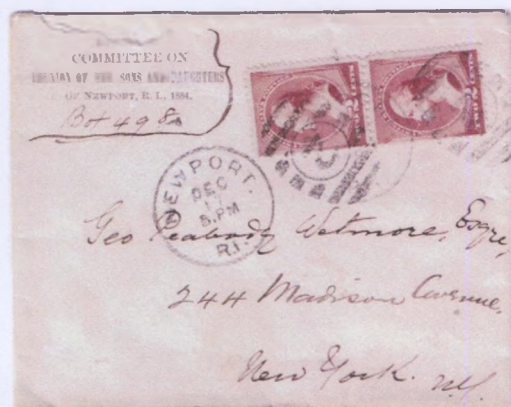 COMMITTEE ON
REUNION OF THE SONS AND DAUGHTERS
OF NEWPORT, R. I., 1884.
Box 498
NEWPORT.
DEC
17
5 PM
R.I.
Geo Peabody Wetmore, Esqre,
244 Madison Avenue,
New York. N.Y.